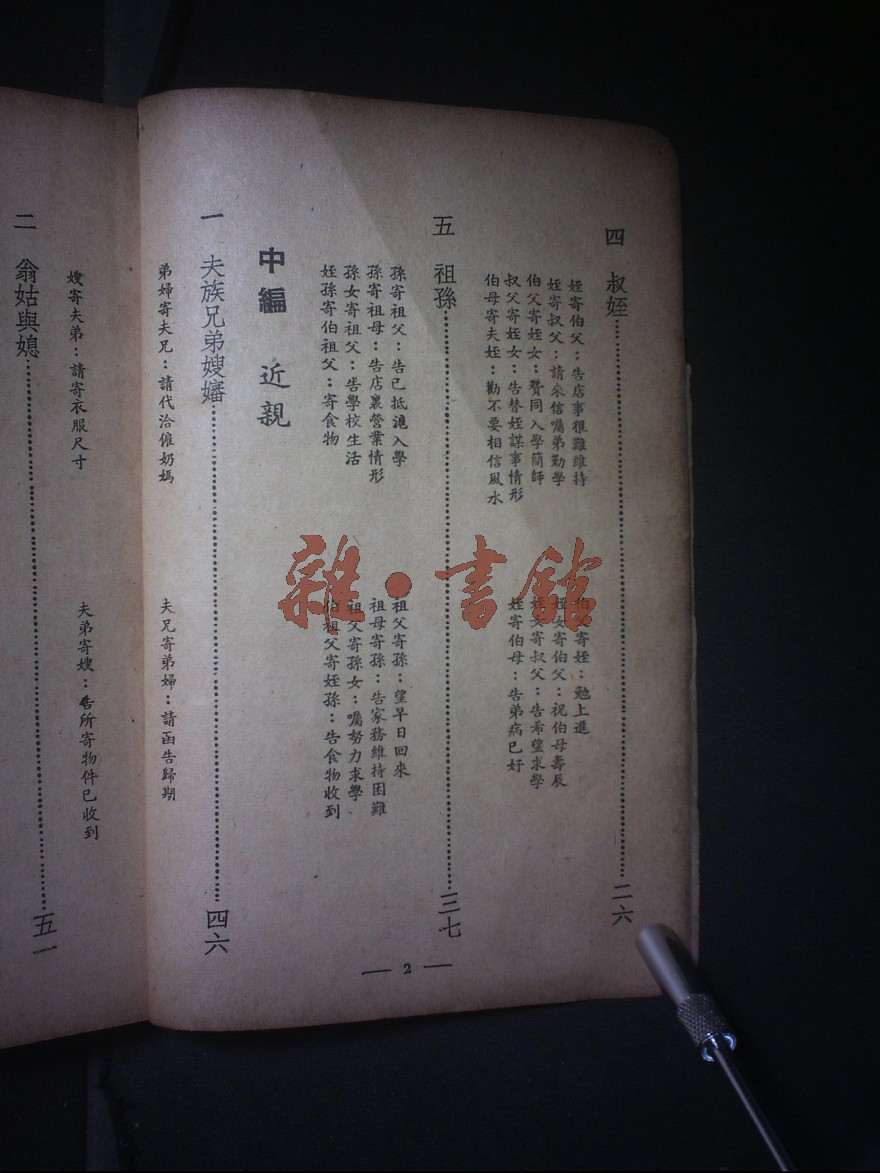 四 叔姪……二六
姪寄伯父：告店事很難維持
伯父寄姪：勉上進
姪寄叔父：請來信囑弟勤學
姪女寄伯父：祝伯母壽辰
伯父寄姪女：贊同入學簡師
姪女寄叔父：告希望求學
叔父寄姪女：告替姪謀事情形
姪寄伯母：告弟病已好
伯母寄夫姪：勸不要相信風水
五 祖孫……三七
孫寄祖父：告已抵滬入學
祖父寄孫：望早日回來
孫寄祖母：告店裏營業情形
祖母寄孫：告家務維持困難
孫女寄祖父：告學校生活
祖父寄孫女：囑努力求學
姪孫寄伯祖父：寄食物
伯祖父寄姪孫：告食物收到
中編 近親
一 夫族兄弟嫂嬸……四六
弟婦寄夫兄：請代洽僱奶媽
夫兄寄弟婦：請函告歸期
嫂寄夫弟：請寄衣服尺寸
夫弟寄嫂：告所寄物件已收到
二 翁姑與媳……五一
— 2 —
雜·書館